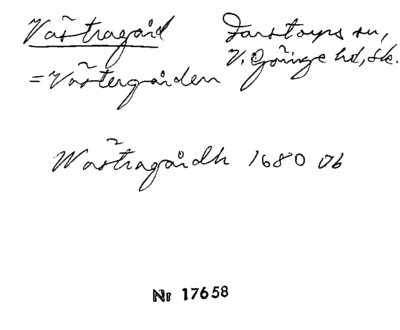 Västragård
= Västergården
Farstorps sn,
V. Göinge hd, Sk.
Wästragårdh 1680 Jb
Nr 17658